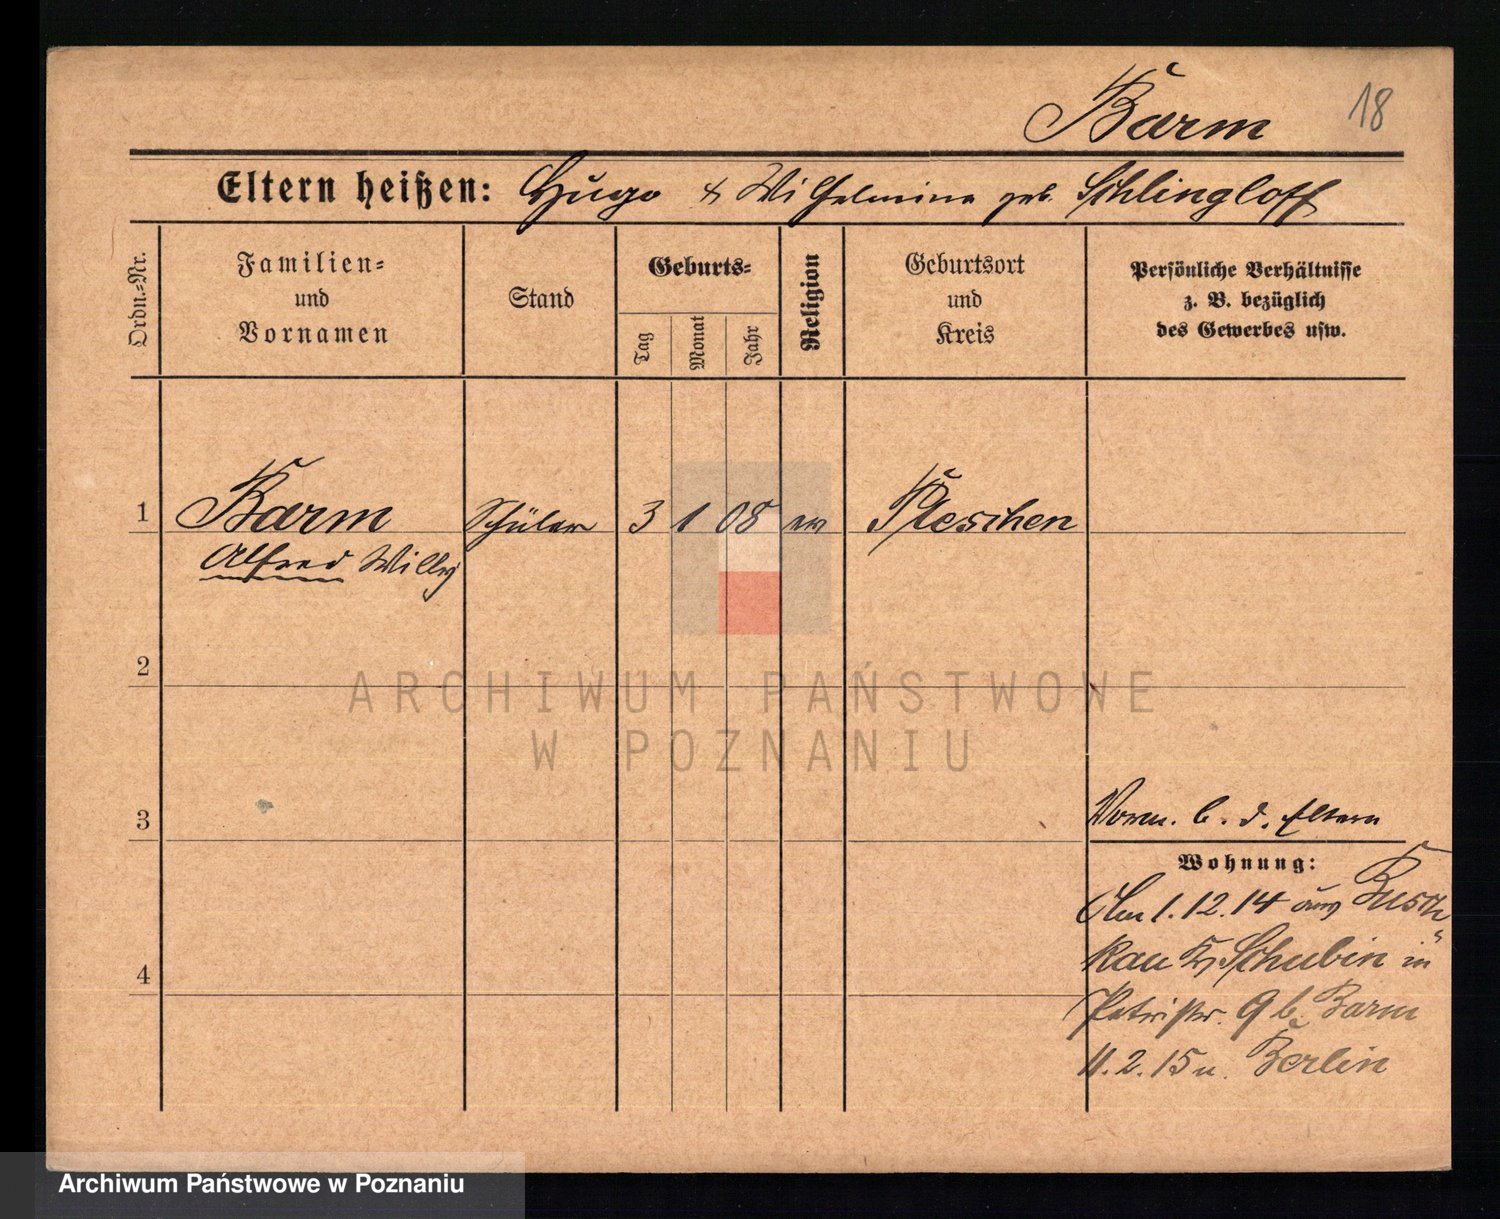 Barm 18
Eltern heißen: Hugo & Wilhelmine geb. Schlingloff
Ordn.-Nr.
Familien-
und
Vornamen
Stand
Geburts-
Tag
Monat
Jahr
Religion
Geburtsort
und
Kreis
Persönliche Verhältnisse
z. B. bezüglich
des Gewerbes usw.
1 Barm Schüler 3 1 08 ev Pleschen
Alfred Willy
2
ARCHIWUM PAŃSTWOWE
W POZNANIU
3
Vorm. b. d. Eltern
Wohnung:
Am 1. 12. 14 aus
Schubin in
4
Patristr. 9 b. Barm
11. 2. 15 n. Berlin
Archiwum Państwowe w Poznaniu